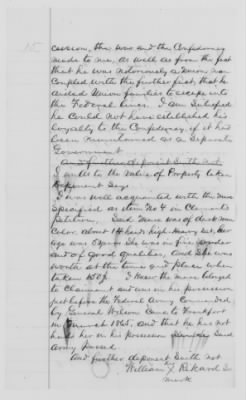 15
cession, the war and the Confederacy
made to me, as well as from the fact
that he was notoriously a Union man
coupled with the further fact, that he
aided Union families to escape into
the Federal lines. I am Satisfied
he could not have established his
loyalty to the Confederacy if it had
been maintained as a Separate
Government
And further deponent Saith not
I as to the value of Property taken
deponent Says
I was well acquainted with the mare
Specified as item No 4 in Claimants
Petition, Said Mare was of dark
Color. about 14 hands high heavy Set, her
age was years She was in fine order
and of good qualities, and she was
worth at the time and place when
taken I know the mare belonged
to Claimant and was in his possession
just before the Federal Army Commanded
by General Wilson Came to Frankfort
in March 1865, and that he has not
had her in his possession Since Said
Army passed.
And further deponent Saith not
William Rikard
mark